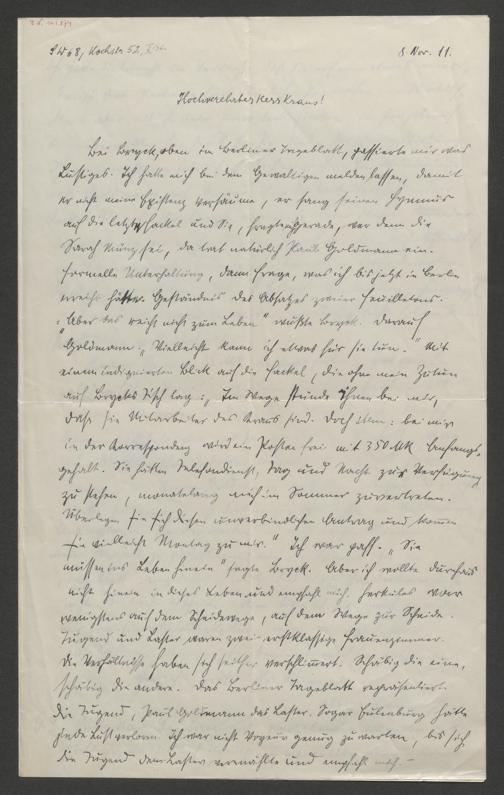 SW 68, Kochstr 52,
8 Nov. 11.
Hochverehrter Herr Kraus!
Bei Bryck, oben im Berliner Tageblatt, passierte mir was
Lustiges. Ich hatte mich bei dem Gewaltigen melden lassen, damit
er nicht meine Existenz versäume, er sang seinen Hymnus
auf die letzte Fackel und Sie, fragte gerade, wer denn die
Sarah Münz sei, da trat natürlich Paul Goldmann ein.
Formelle Unterhaltung, dann Frage, was ich bis jetzt in Berlin
erreicht hätte. Geständnis des Absatzes zweier Feuilletons.
"Aber das reicht nicht zum Leben" wußte Bryck. Darauf
Goldmann: "Vielleicht kann ich etwas für Sie tun." Mit
einem indignierten Blick auf die Fackel, die
auf Brycks Tisch lag: "Im Wege stünde Ihnen bei mir,
dass Sie Mitarbeiter des Kraus sind. Doch bei mir
in der Korrespondenz wird ein Posten frei mit 350 Mk Anfangs-
gehalt. Sie hätten Telefondienst, Tag und Nacht zur Verfügung
zu stehen, monatelang mich im Sommer zu vertreten.
Überlegen Sie sich diesen unverbindlichen Antrag und kommen
Sie vielleicht Montag zu mir." Ich war paff. "Sie
müssen ins Leben hinein" sagte Bryck. Aber ich wollte durchaus
nicht hinein in dieses Leben und empfahl mich. Herkules war
wenigstens auf dem Scheidewege, auf dem Wege zur Scheide.
Tugend und Laster waren zwei erstklassige Frauenzimmer.
Die Verhältnisse haben sich seither verschlimmert. Schäbig die eine,
schäbig die andere. Das Berliner Tageblatt repräsentiert
die Tugend, Paul Goldmann das Laster. Sogar Eulenburg hätte
jede Lust verloren. Ich war nicht Voyeur genug zu warten, bis sich
die Tugend dem Laster vermählte und empfahl mich. —